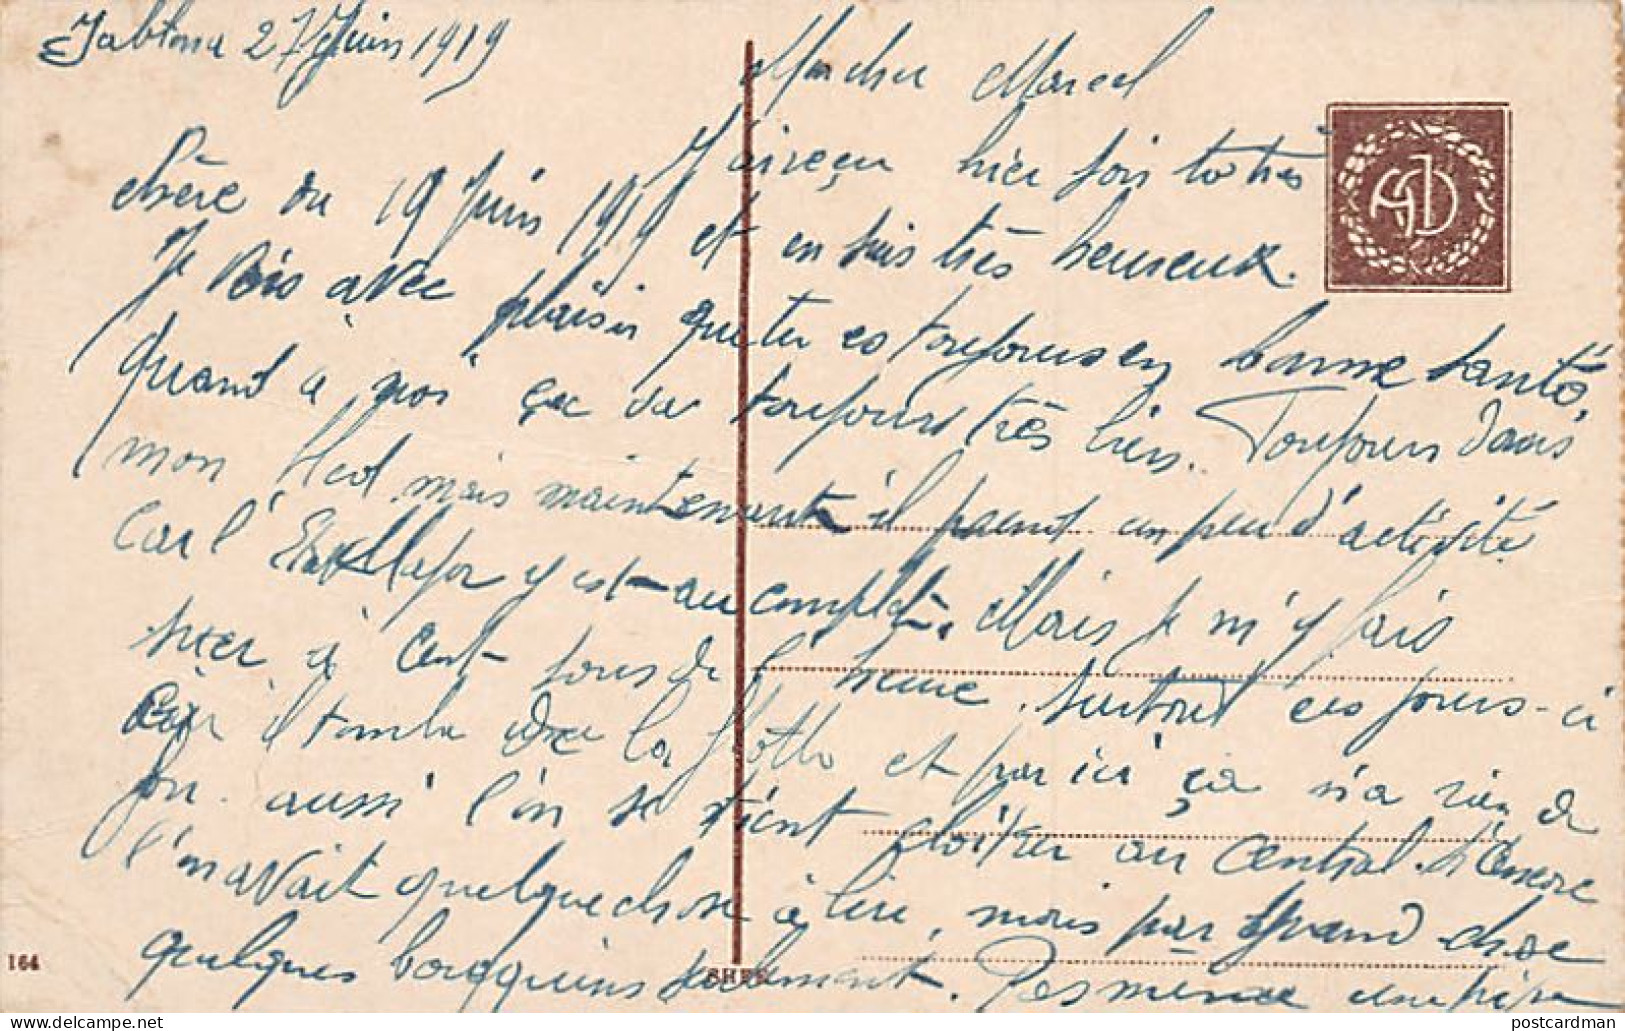 Jabłona 27 Juin 1919
Mon cher Marcel
J'ai reçu hier soir ta très
chère du 19 Juin 1919 et en suis très heureux.
Je vois avec plaisir que tu es toujours en bonne santé,
quand à moi ça va toujours très bien. Toujours dans
mon bled mais maintenant il prend un peu d'activité
car l' Etat Major y est au complet. Mais je m'y fais
suer à cent sous de l'heure. Surtout ces jours-ci
car il tombe de la flotte et par ici ça n'a rien de
fou. aussi l'on se tient cloîtrer au Central. Si encore
l'on avait quelque chose à lire, mais pas grand chose
quelques bouquins seulement. Pas même une pipe
164
AD
postcardman